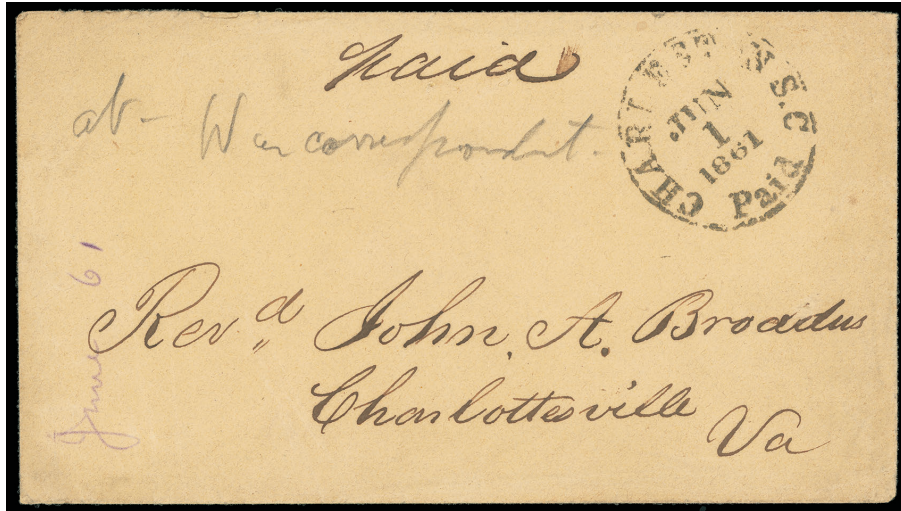 paid
CHARLESTON S.C
JUN
1
1861
Paid
at - War correspondent.
June 61
Rev^d John. A. Broadus
Charlottesville
Va